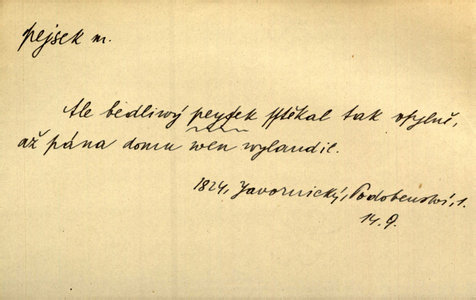 pejsek m.
Ale bedliwý peysek sstěkal tak pylně,
až pána domu wen wylaudil.
1824, Javornický, Podobenstwí, 1.
14.9.